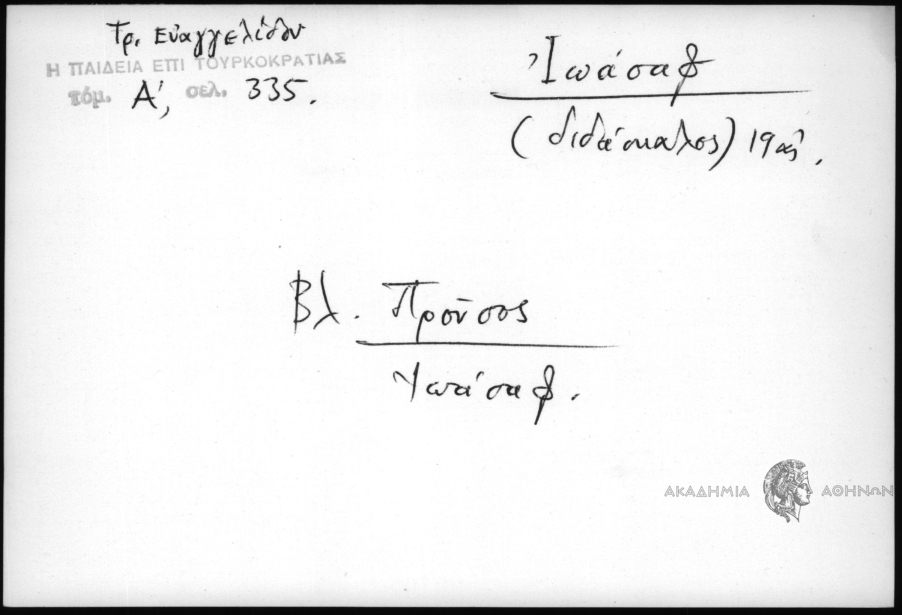 Τρ. Εὐαγγελίδου
Η ΠΑΙΔΕΙΑ ΕΠΙ ΤΟΥΡΚΟΚΡΑΤΙΑΣ
τόμ. Α', σελ. 335.
Ἰωάσαφ
(διδάσκαλος) 19 αἰ.
Βλ. Προῦσος
Ἰωάσαφ.
ΑΚΑΔΗΜΙΑ ΑΘΗΝΩΝ